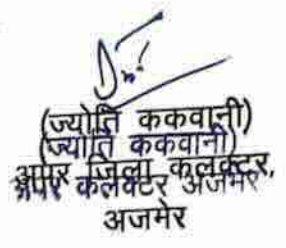 (ज्योति ककवानी)
(ज्योति ककवानी)
अपर जिला कलक्टर,
अपर कलेक्टर अजमेर
अजमेर